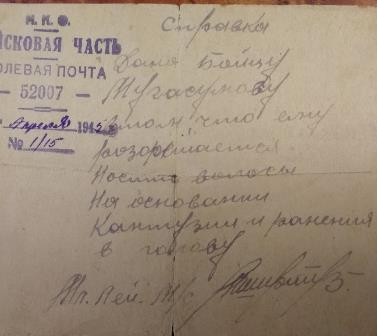 Н. К. О.
ЙСКОВАЯ ЧАСТЬ
ОЛЕВАЯ ПОЧТА
— 52007 —
апреля 194
№ 1/15
Справка
Дана Бойцу
в том что ему
розорешается
Носить волосы
На основании
Кантузии и ранения
в голову
Мл. Лей. М/с